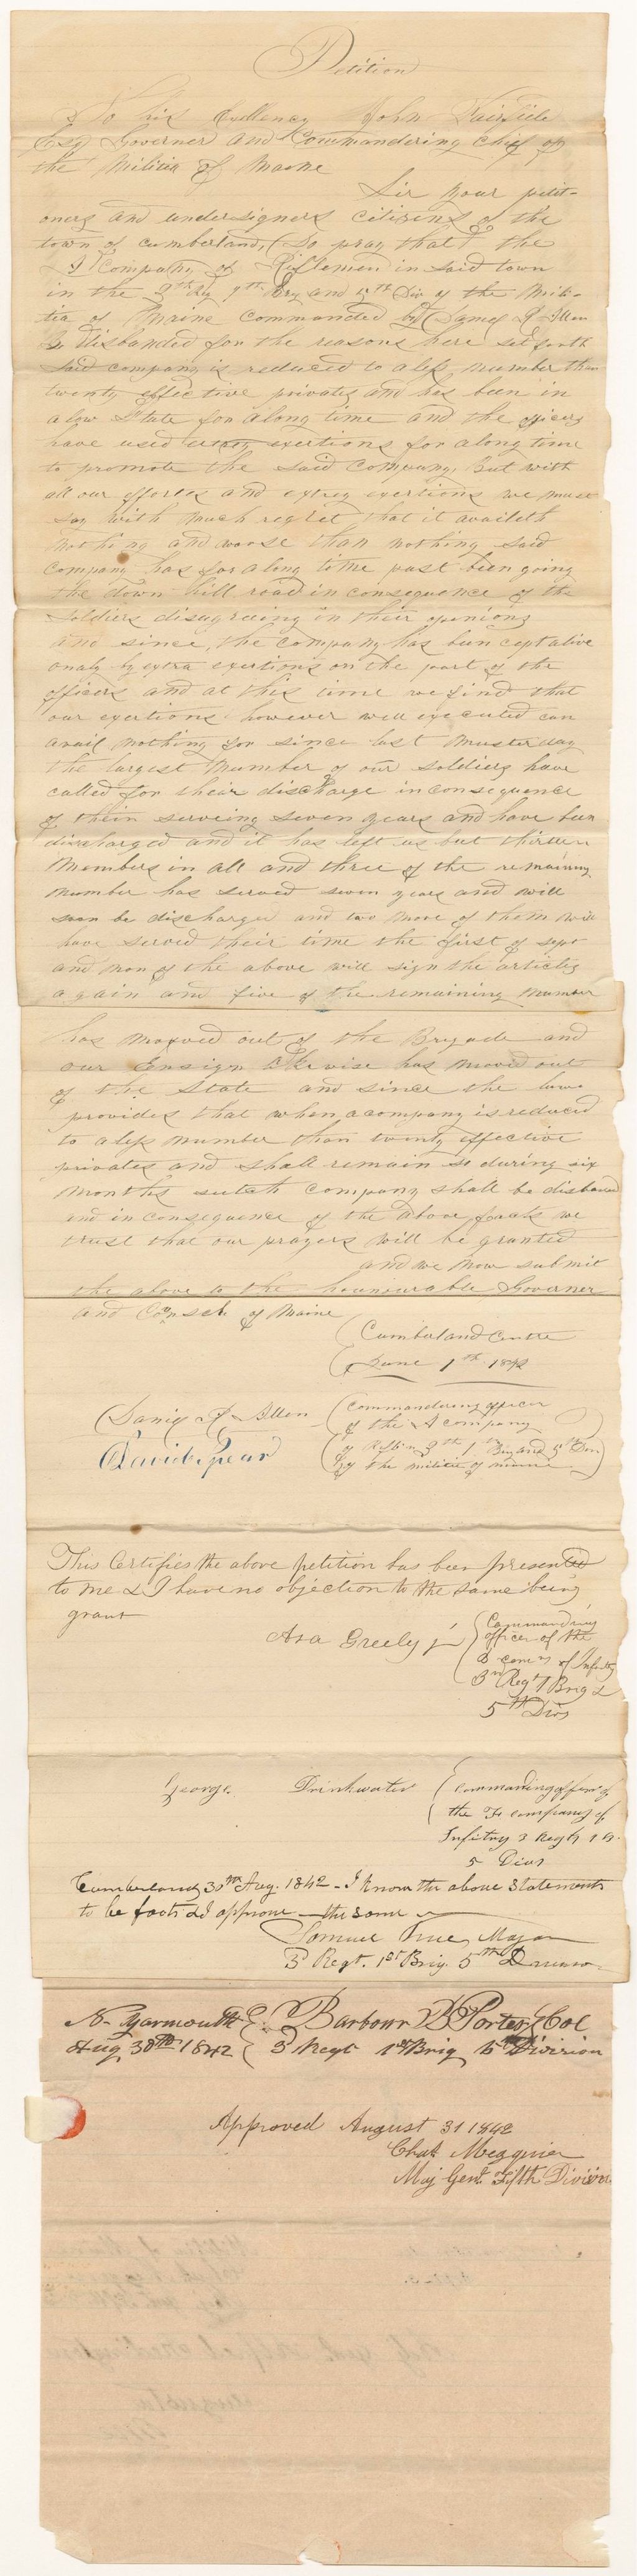 Petition
To his Exellency John Fairfield
Esq Governer and Commandering Chief of
the Militia of Maine
Sir your petit-
oners and undersigners citizens of the
town of cumberland, Do pray that the
A Company of Riflemen in said town
in the Reg Brig and 5th Div of the Mili-
tia of Maine Commanded by R Allen
Be disbanded for the reasons here set forth
said company is reduced to a less number than
twenty effective privates and has been in
a low State for along time and the officers
have used exertions for along time
to promote the said Company, But with
all our effortes and extrey exertions we must
say with much regret that it availeth
nothing and worse than nothing said
Company has for along time past been going
the down hill road in consequence of the
soldiers disagreeing in their opinions
and since, the company has bun
onaly by extra exertions on the part of the
officers and at this time we find that
our exertions however well executed can
avail nothing for since last muster day
the largest number of our soldiers have
called for their discharge in consequence
of their serveing seven years and have bun
discharged and it has left us but thirteen
members in all and three of the remaining
number has served seven years and will
soon be discharged and two more of them will
have served their time the first of sept
and non of the above will sign the articles
again and five of the remaining number
has moved out of the Brigade and
our Ensign likewise has moved out
of the State and since the law
provides that when a company is reduced
to a less number than twenty effective
privates and shall remain so during six
months sutch company shall be disband
and in consequence of the above facts we
trust that our prayers will be granted
and we now submit
the above to the honourable Governer
and of Maine
Cumberland Centre
June 1th 1842
R Allen
Commandering officer
of the A company
of 3th 1th Brig and 5th Div
of the militia of maine
David Spear
This Certifies the above petition has been presented
to me & I have no objection to the same being
grant
Asa Greely jr
Commandring
officer of the
B com'y of Infntry
3rd Regt 1 Brig &
5th Divs
George Drinkwater
Commanding officer of
the company of
Infitry 3 Regt 1 B.
5 Divs
Cumberland 30th Aug. 1842 - I know the above statements
to be facts & I approve the same
Samuel True, Major
3d Regt. 1st Brig. 5th Division
N- Yarmouth Barbour B Porter Col
Aug 30th 1842 3 Regt 1st Brig 5th Division
Approved August 31 1842
Chas Meaguire
Maj Genl. Fifth Division